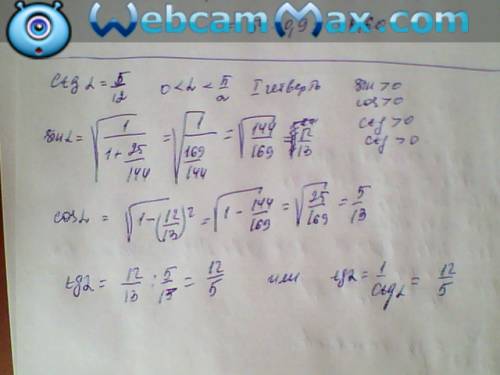 WebcamMax.com
ctg α = 5/12 0 < α < π/2 I четверть sin > 0
cos > 0
sin α = √(1/(1 + 25/144)) = √(1/(169/144)) = √(144/169) = 12/13 ctg > 0
cos α = √(1 − (12/13)²) = √(1 − 144/169) = √(25/169) = 5/13
tg α = 12/13 : 5/13 = 12/5 или tg α = 1/ctg α = 12/5